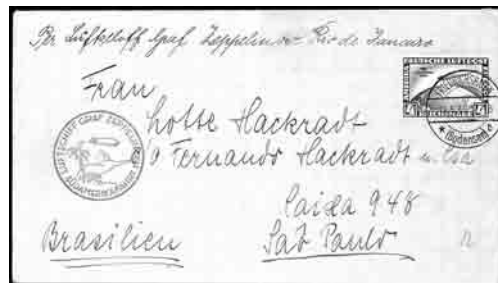 Per Luftschiff Graf Zeppelin Rio de Janeiro
Frau
Lotte Hackradt
Fernando Hackradt
Caixa 948
São Paulo
Brasilien
LUFTSCHIFF GRAF ZEPPELIN
SÜDAMERIKAFAHRT
DEUTSCHE LUFTPOST
(Bodensee)